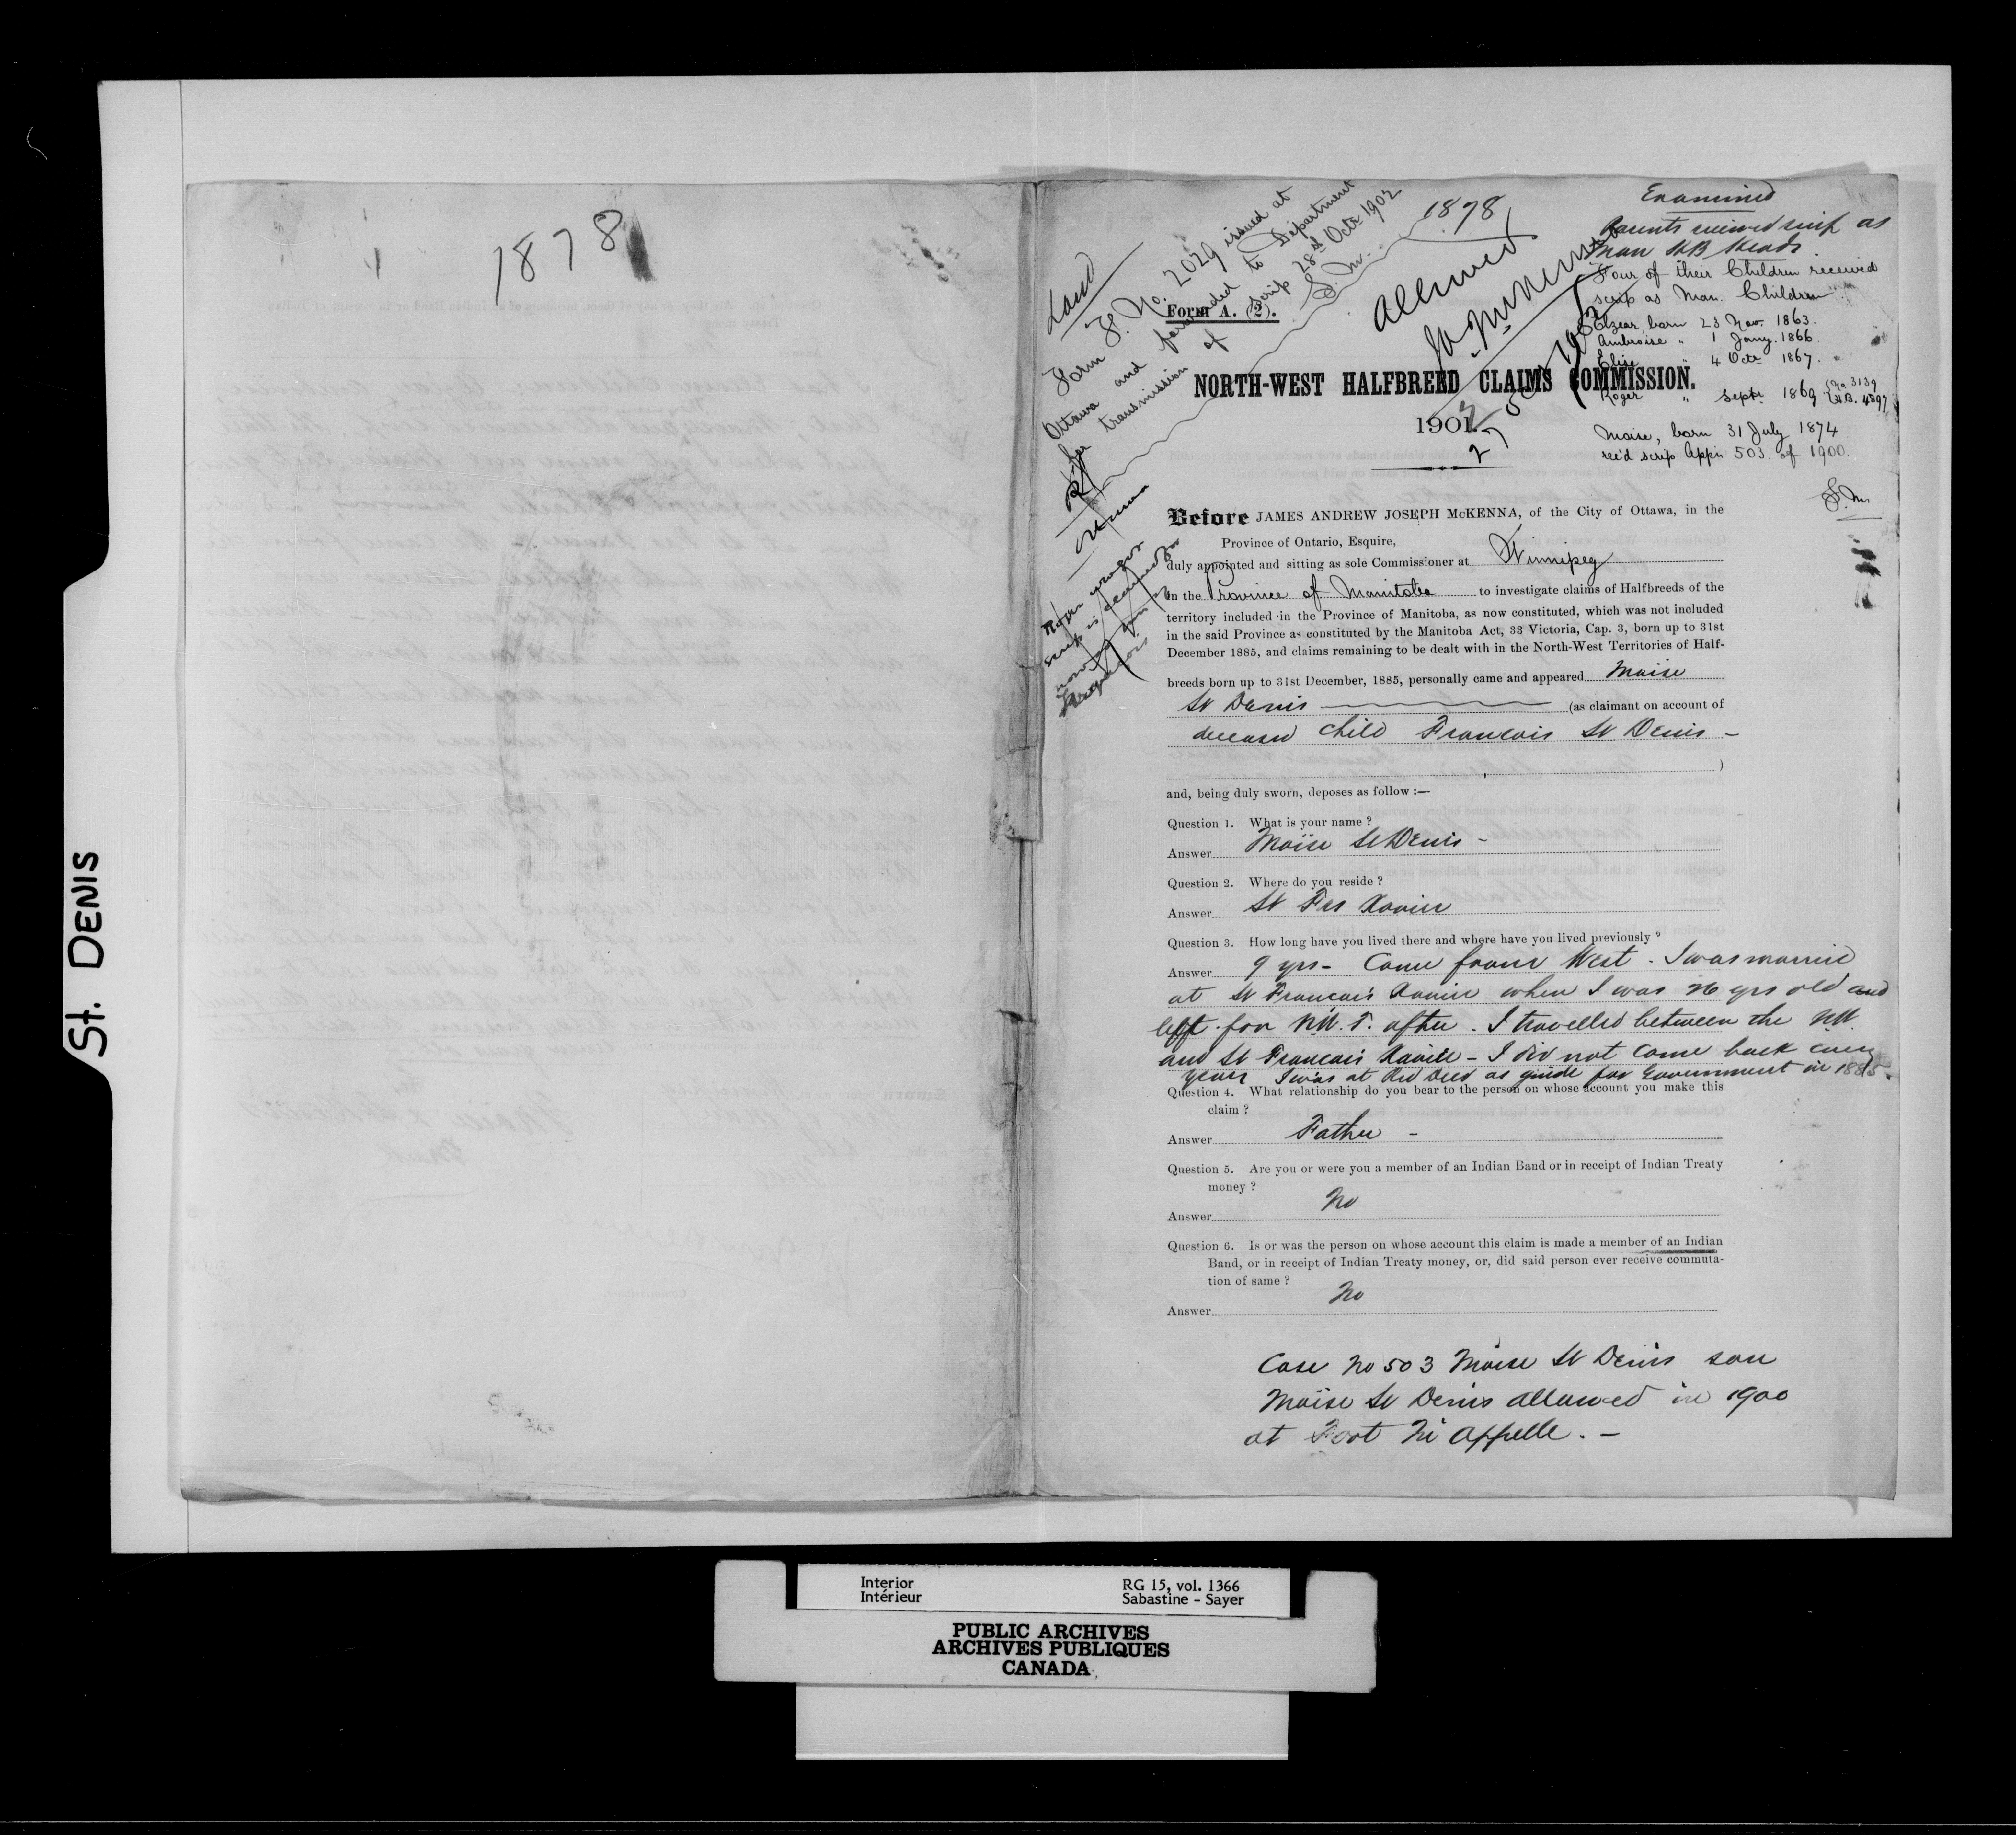 St. DENIS
1878
1878
Land
Form F. No. 2029 issued at
Ottawa and forwarded to Department
for transmission of scrip 28th Octr 1902
F. M.
Allowed
Examined
Parents received scrip as
Man HB Heads
Four of their Children received
scrip as Man. Children
Elzear, born 23 Nov. 1863.
Ambroise " 1 Jany. 1866.
Elise " 4 Octr 1867.
Roger " Septr 1869 No 3139 H.B. 4397
Moise, born 31 July 1874
rec'd scrip Appn 503 of 1900.
F. M.
Form A. (2).
NORTH-WEST HALFBREED CLAIMS COMMISSION.
1901.
Before JAMES ANDREW JOSEPH McKENNA, of the City of Ottawa, in the
Province of Ontario, Esquire,
duly appointed and sitting as sole Commissioner at Winnipeg
in the Province of Manitoba to investigate claims of Halfbreeds of the
territory included in the Province of Manitoba, as now constituted, which was not included
in the said Province as constituted by the Manitoba Act, 33 Victoria, Cap. 3, born up to 31st
December 1885, and claims remaining to be dealt with in the North-West Territories of Half-
breeds born up to 31st December, 1885, personally came and appeared Moise
St Denis (as claimant on account of
deceased child Francois St Denis -
)
and, being duly sworn, deposes as follow :—
Question 1. What is your name ?
Answer Moïse St Denis -
Question 2. Where do you reside ?
Answer St Frs Xavier
Question 3. How long have you lived there and where have you lived previously ?
Answer 9 yrs - Came from West - I was married
at St Francois Xavier when I was 26 yrs old and
left for N.W.T. after. I travelled between the NW.
and St Francois Xavier - I did not come back every
year I was at Red Deer as guide for Government in 1885.
Question 4. What relationship do you bear to the person on whose account you make this
claim ?
Answer Father -
Question 5. Are you or were you a member of an Indian Band or in receipt of Indian Treaty
money ?
Answer No
Question 6. Is or was the person on whose account this claim is made a member of an Indian
Band, or in receipt of Indian Treaty money, or, did said person ever receive commuta-
tion of same ?
Answer No
Case No 503 Moise St Denis son
Moïse St Denis allowed in 1900
at Fort Qu'Appelle. -
Interior
Intérieur
RG 15, vol. 1366
Sabastine - Sayer
PUBLIC ARCHIVES
ARCHIVES PUBLIQUES
CANADA